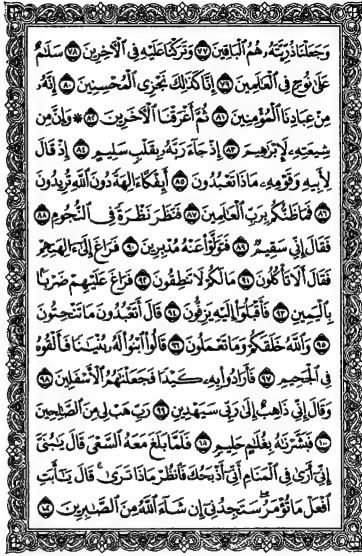 وَجَعَلْنَا ذُرِّيَّتَهُۥ هُمُ ٱلْبَاقِينَ ٧٧ وَتَرَكْنَا عَلَيْهِ فِى ٱلْـَٔاخِرِينَ ٧٨ سَلَـٰمٌ
عَلَىٰ نُوحٍ فِى ٱلْعَـٰلَمِينَ ٧٩ إِنَّا كَذَٰلِكَ نَجْزِى ٱلْمُحْسِنِينَ ٨٠ إِنَّهُۥ
مِنْ عِبَادِنَا ٱلْمُؤْمِنِينَ ٨١ ثُمَّ أَغْرَقْنَا ٱلْـَٔاخَرِينَ ٨٢ * وَإِنَّ مِن
شِيعَتِهِۦ لَإِبْرَٰهِيمَ ٨٣ إِذْ جَآءَ رَبَّهُۥ بِقَلْبٍ سَلِيمٍ ٨٤ إِذْ قَالَ
لِأَبِيهِ وَقَوْمِهِۦ مَاذَا تَعْبُدُونَ ٨٥ أَئِفْكًا ءَالِهَةً دُونَ ٱللَّهِ تُرِيدُونَ
٨٦ فَمَا ظَنُّكُم بِرَبِّ ٱلْعَـٰلَمِينَ ٨٧ فَنَظَرَ نَظْرَةً فِى ٱلنُّجُومِ ٨٨
فَقَالَ إِنِّى سَقِيمٌ ٨٩ فَتَوَلَّوْا۟ عَنْهُ مُدْبِرِينَ ٩٠ فَرَاغَ إِلَىٰٓ ءَالِهَتِهِمْ
فَقَالَ أَلَا تَأْكُلُونَ ٩١ مَا لَكُمْ لَا تَنطِقُونَ ٩٢ فَرَاغَ عَلَيْهِمْ ضَرْبًۢا
بِٱلْيَمِينِ ٩٣ فَأَقْبَلُوٓا۟ إِلَيْهِ يَزِفُّونَ ٩٤ قَالَ أَتَعْبُدُونَ مَا تَنْحِتُونَ
٩٥ وَٱللَّهُ خَلَقَكُمْ وَمَا تَعْمَلُونَ ٩٦ قَالُوا۟ ٱبْنُوا۟ لَهُۥ بُنْيَـٰنًا فَأَلْقُوهُ
فِى ٱلْجَحِيمِ ٩٧ فَأَرَادُوا۟ بِهِۦ كَيْدًا فَجَعَلْنَـٰهُمُ ٱلْأَسْفَلِينَ ٩٨
وَقَالَ إِنِّى ذَاهِبٌ إِلَىٰ رَبِّى سَيَهْدِينِ ٩٩ رَبِّ هَبْ لِى مِنَ ٱلصَّـٰلِحِينَ
١٠٠ فَبَشَّرْنَـٰهُ بِغُلَـٰمٍ حَلِيمٍ ١٠١ فَلَمَّا بَلَغَ مَعَهُ ٱلسَّعْىَ قَالَ يَـٰبُنَىَّ
إِنِّىٓ أَرَىٰ فِى ٱلْمَنَامِ أَنِّىٓ أَذْبَحُكَ فَٱنظُرْ مَاذَا تَرَىٰ ۚ قَالَ يَـٰٓأَبَتِ
ٱفْعَلْ مَا تُؤْمَرُ ۖ سَتَجِدُنِىٓ إِن شَآءَ ٱللَّهُ مِنَ ٱلصَّـٰبِرِينَ ١٠٢